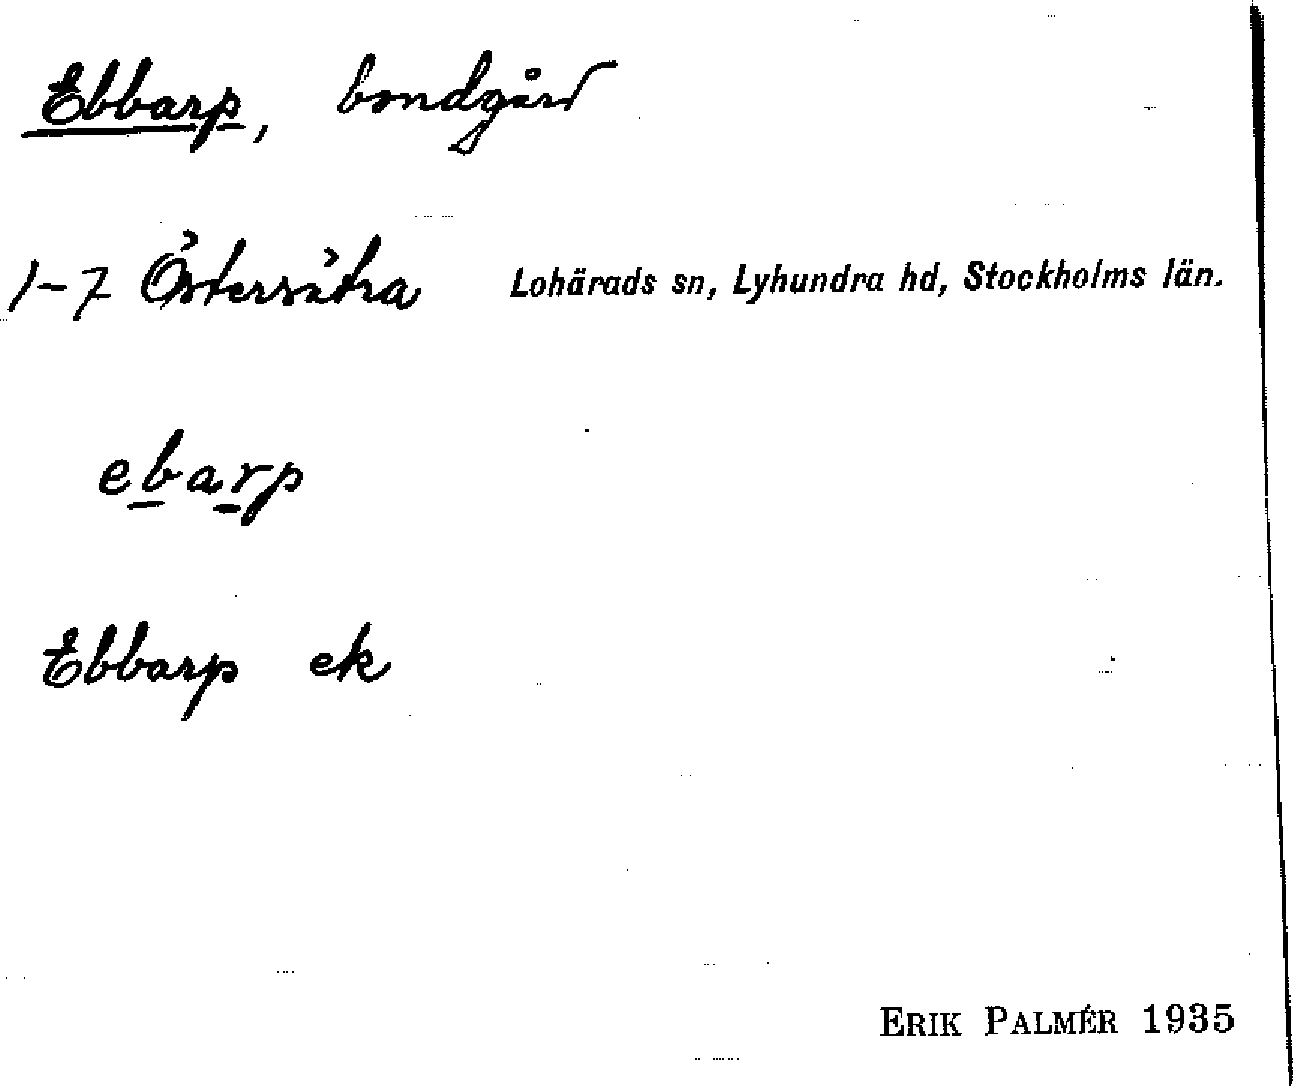 Ebbarp, bondgård
1-7 Östersätra Lohärads sn, Lyhundra hd, Stockholms län.
ebarp
Ebbarp ek
ERIK PALMÉR 1935